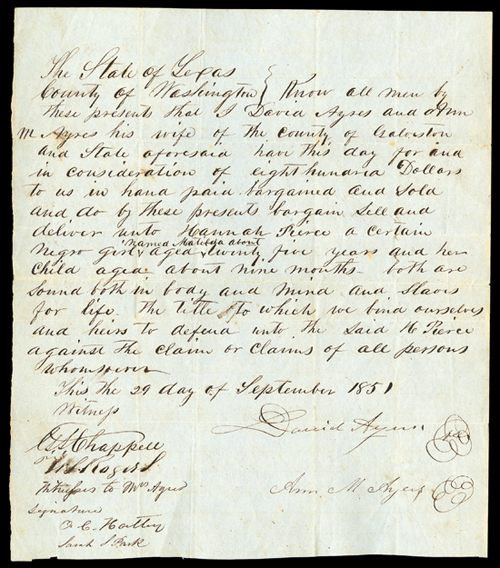 The State of Texas
County of Washington } Know all men by
these presents that I David Ayres and Ann
M Ayres his wife of the county of Galveston
and State aforesaid have this day for and
in consideration of eight hundred Dollars
to us in hand paid bargained and Sold
and do by these presents bargain Sell and
deliver unto Hannah Pierce a certain
Negro girl named Matilda aged about twenty five years and her
child aged about nine months both are
Sound both in body and mind and Slaves
for life the title to which we bind ourselves
and heirs to defend unto the Said H Pierce
against the claim or claims of all persons
whomsoever
This the 29 day of September 1851
Witness
David Ayres
Chappell
Rogers
Witnesses to Mrs Ayres
Signature
Ann M Ayres
C. Hatley
Sarah S Park